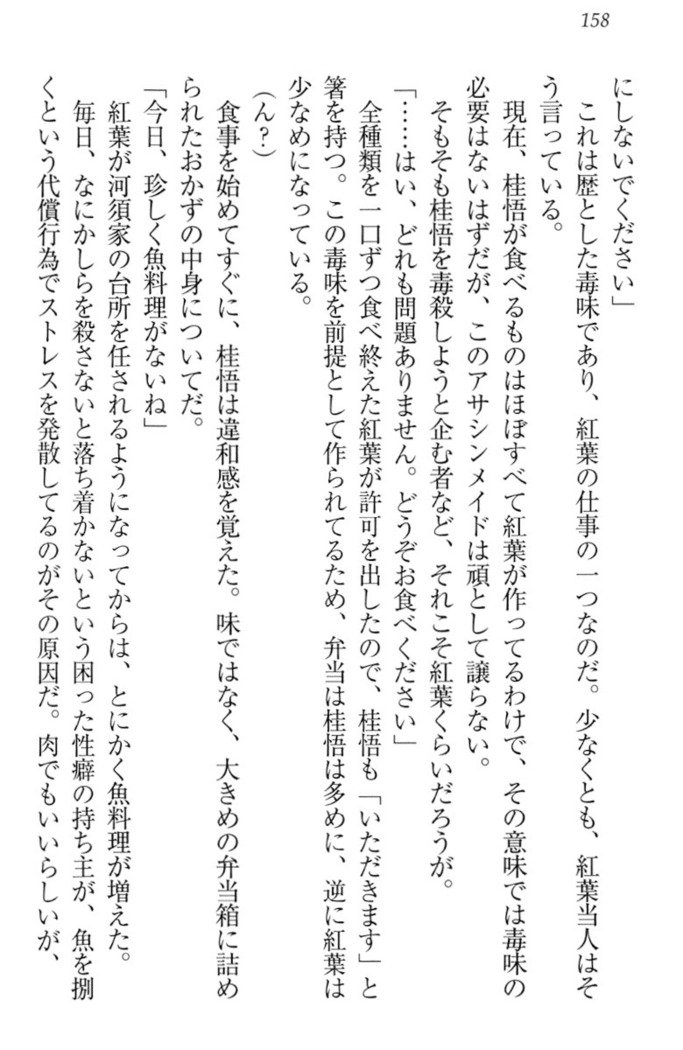 158
にしないでください」
　これは歴とした毒味であり、紅葉の仕事の一つなのだ。少なくとも、紅葉当人はそ
う言っている。
　現在、桂悟が食べるものはほぼすべて紅葉が作ってるわけで、その意味では毒味の
必要はないはずだが、このアサシンメイドは頑として譲らない。
　そもそも桂悟を毒殺しようと企む者など、それこそ紅葉くらいだろうが。
「……はい、どれも問題ありません。どうぞお食べください」
　全種類を一口ずつ食べ終えた紅葉が許可を出したので、桂悟も「いただきます」と
箸を持つ。この毒味を前提として作られてるため、弁当は桂悟は多めに、逆に紅葉は
少なめになっている。
（ん？）
　食事を始めてすぐに、桂悟は違和感を覚えた。味ではなく、大きめの弁当箱に詰め
られたおかずの中身についてだ。
「今日、珍しく魚料理がないね」
　紅葉が河須家の台所を任されるようになってからは、とにかく魚料理が増えた。
　毎日、なにかしらを殺さないと落ち着かないという困った性癖の持ち主が、魚を捌
くという代償行為でストレスを発散してるのがその原因だ。肉でもいいらしいが、